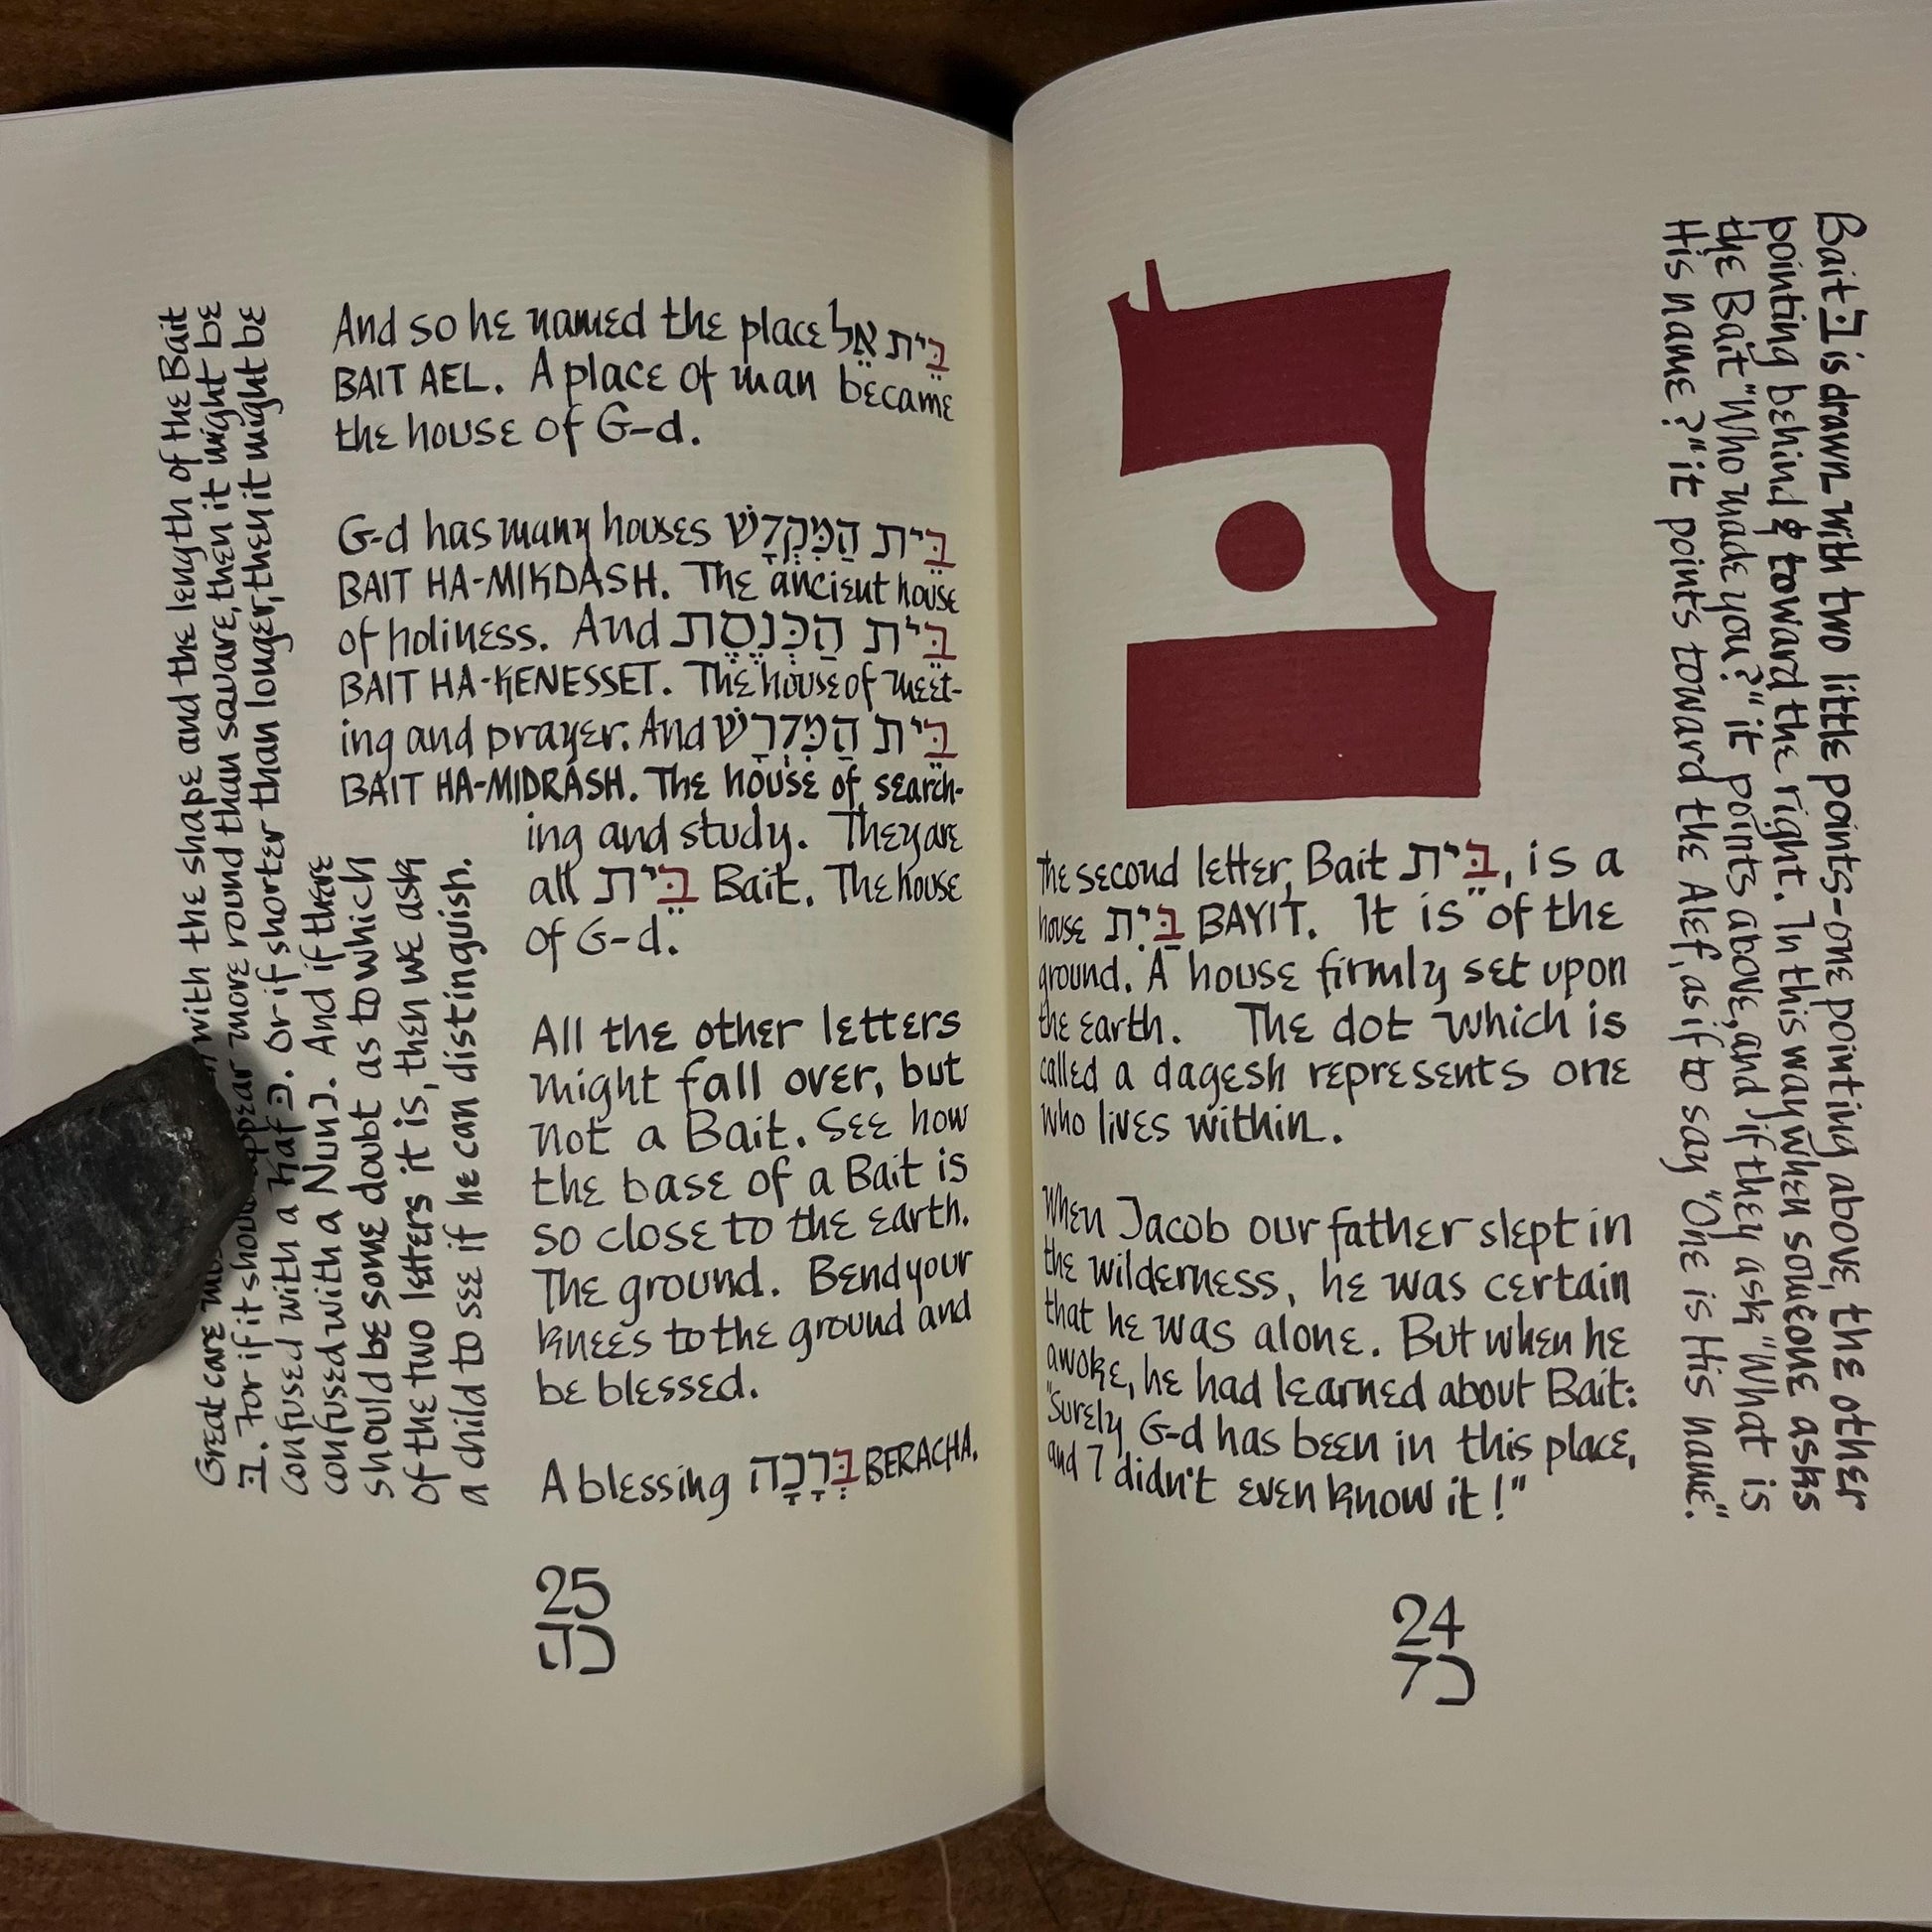 בּ
The second letter, Bait בֵּית, is a
house בַּיִת BAYIT. It is of the
ground. A house firmly set upon
the earth. The dot which is
called a dagesh represents one
who lives within.
When Jacob our father slept in
the wilderness, he was certain
that he was alone. But when he
awoke, he had learned about Bait:
"Surely G-d has been in this place,
and I didn't even know it!"
Bait בּ is drawn with two little points-one pointing above, the other
pointing behind & toward the right. In this way when someone asks
the Bait "Who made you?" it points above, and if they ask "What is
His name?" it points toward the Alef, as if to say "One is His name."
24
כד
And so he named the place בֵּית אֵל
BAIT AEL. A place of man became
the house of G-d.
G-d has many houses בֵּית הַמִּקְדָּשׁ
BAIT HA-MIKDASH. The ancient house
of holiness. And בֵּית הַכְּנֶסֶת
BAIT HA-KENESSET. The house of meet-
ing and prayer. And בֵּית הַמִּדְרָשׁ
BAIT HA-MIDRASH. The house of search-
ing and study. They are
all בֵּית Bait. The house
of G-d.
All the other letters
might fall over, but
not a Bait. See how
the base of a Bait is
so close to the earth.
The ground. Bend your
knees to the ground and
be blessed.
A blessing בְּרָכָה BERACHA.
Great care with the shape and the length of the Bait
בּ. For if it appear more round than square, then it might be
confused with a Kaf כּ. Or if shorter than longer, then it might be
confused with a Nun נ. And if there
should be some doubt as to which
of the two letters it is, then we ask
a child to see if he can distinguish.
25
כה